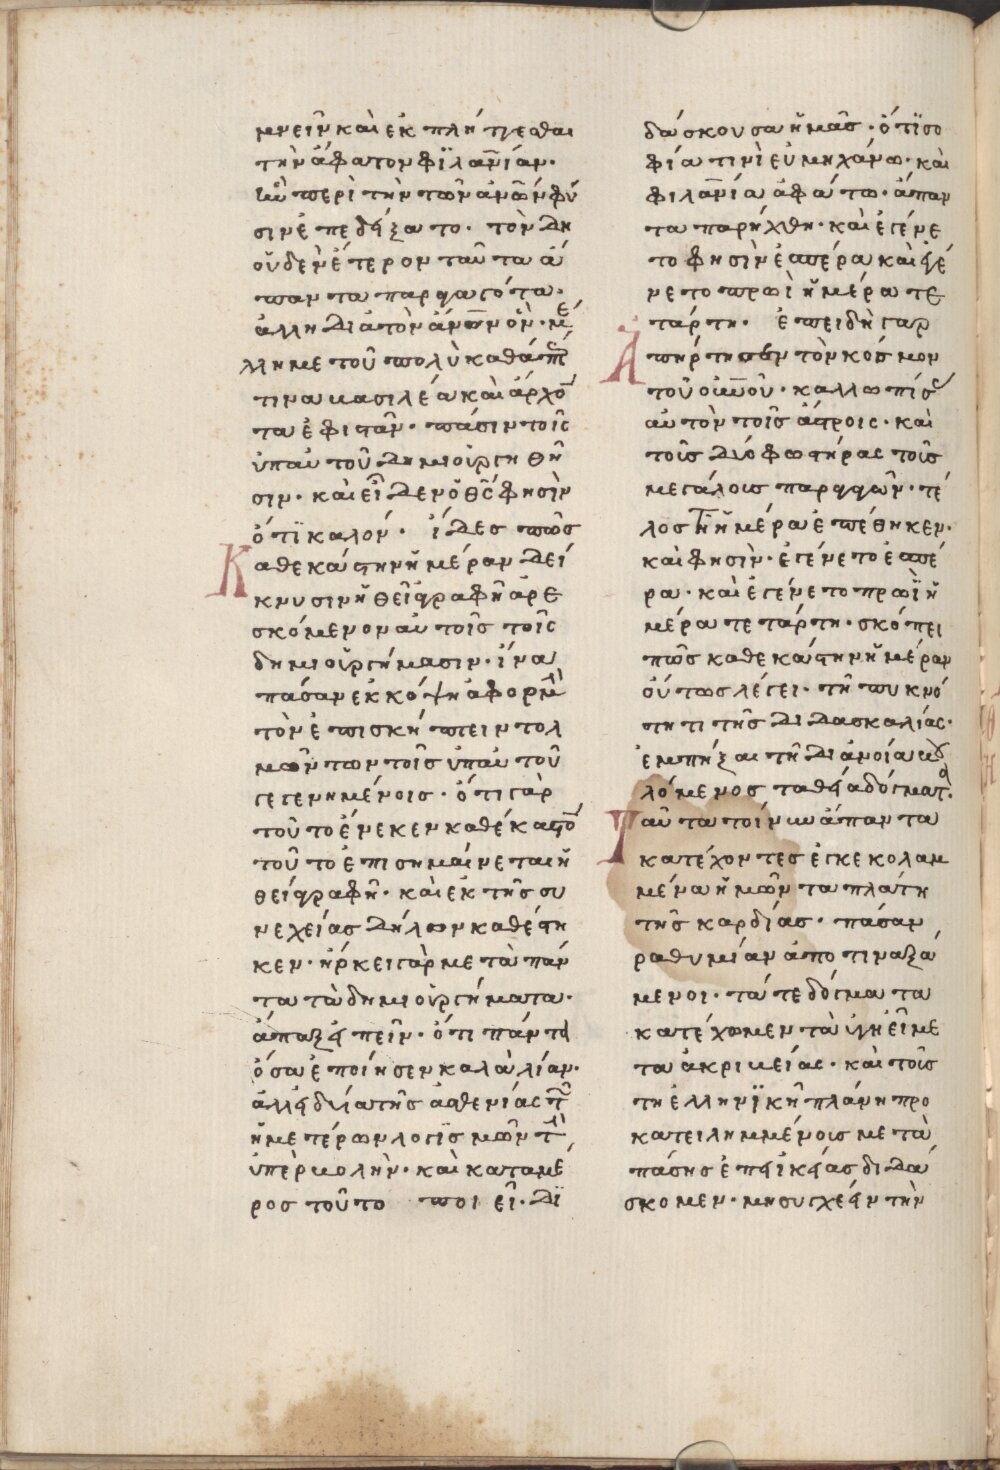 μνεῖν καὶ ἐκπλήττεσθαι
τὴν ἄφατον φϊλαν̅ίαν·
ἣν περὶ τὴν τῶν ἀν̅ων φύ
σιν ἐπεδείξατο. τὸν δη
οὐδεν ἕτερον ταῦτα ἅ
παντα παραγαγόντα·
ἀλλ ἢ διὰ τὸν ἄν̅ον ὃν· μέ
λλη μετ οὐ πολὺ καθάπερ
τινα βασιλέα καὶ ἄρχον
τα ἐφιστᾶν· πᾶσιν τοῖς
ὑπ αὐτοῦ δημιουργηθῆ
σιν· καὶ εἶδεν ὁ θς̅ φησὶν
ὅτϊ καλόν· ἴδες πῶς
καθεκάστην ἡμέραν δεί
κνυσιν ἡ θεῖ γραφὴ ἀρε
σκόμενον αὐτοῖς τοῖς
δημιουργήμασιν· ἵνα
πᾶσαν ἐκκόψη ἀφορμὴν
τὸν ἐπισκήπτειν τολ
μώντων τοῖς ὑπ αὐτοῦ
γεγενημένοις· ὅτι γὰρ
τούτο ἕνεκεν καθέκαστον
τοῦτο ἐπισημαίνεται ἡ
θεί γραφὴ· καὶ ἐκ τῆς συ
νεχείας δῆλον καθέστη
κεν· ἤρκει γὰρ μετὰ πάν
τα τὰ δημιουργήματα·
ἅπαξ εἰπεῖν· ὅτι πάντα
ὅσα ἐποίησεν καλὰ λίαν·
ἀλλ εἰδυῖα τῆς ἀσθενίας τῶν
ἡμετέρων λογϊσμῶν τὴν
ὑπερβολὴν· καὶ καταμέ
ρος τοῦτο ποιεῖ· δϊ
δάσκουσα ἡμᾶς· ὅτϊ σο
φία τινὶ εὐμηχάνω· καὶ
φιλαν̅ία ἀφάτω· ἅπαν
τα παρήχθη· καὶ ἐγένε
το φησὶν ἑσπέρα καὶ ἐγέ
νετο πρωὶ ἡμέρα τε
τάρτη· ἐπειδὴ γὰρ
ἀπήρτησεν τὸν κόσμον
τοῦ οὐν̅οῦ· καλλωπίσας
αὐτὸν τοῖς ἄστροις· καὶ
τοῖς δύο φωστήρας τοῖς
μεγάλοις παραγαγῶν· τέ
λος τῆ ἡμέρα ἐπέθηκεν·
καὶ φησὶν· ἐγένετο ἑσπέ
ρα· καὶ ἐγένετο πρωῒ ἡ
μέρα τετάρτη· σκόπει
πῶς καθεκάστην ἡμέραν
οὕτως λέγει· τῆ πυκνό
τητι τῆς διδασκαλίας·
ἐμπῆξαι τῆ διανοία βου
λόμενος τὰ θεῖα δόγματα·
ταῦτα τοίνυν ἅπαντα
κατέχοντες ἐγκεκολαμ
μένα ἡμῶν τα πλάτη
τῆς καρδίας· πᾶσαν
ραθυμίαν ἀποτιναξά
μενοι· τάτε δόγματα
κατέχωμεν τὰ ὑγιεῖ με
τα ἀκριβείας· καὶ τοῖς
τη ἑλληνϊκῆ πλάνη προ
κατειλημμένοις μετὰ
πάσης ἐπϊεικείας διδά
σκομεν· μη συγχέειν τὴν